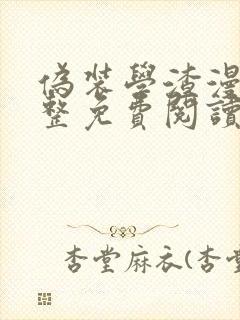 偽裝學渣漫
整免費閱讀
杏堂麻衣(杏堂